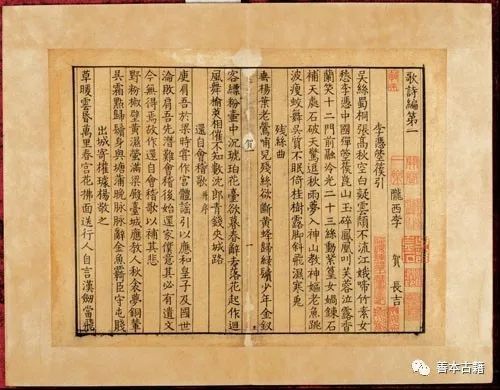 歌詩編第一
隴西李 賀 長吉
李憑箜篌引
吳絲蜀桐張高秋空白凝雲頹不流江娥啼竹素女
愁李憑中國彈箜篌崑山玉碎鳳凰叫芙蓉泣露香
蘭笑十二門前融冷光二十三絲動紫皇女媧鍊石
補天處石破天驚逗秋雨夢入神山教神嫗老魚跳
波瘦蛟舞吳質不眠倚桂樹露脚斜飛濕寒兔
殘絲曲
垂楊葉老鶯哺兒殘絲欲斷黃蜂歸綠鬢少年金釵
賀
一
客縹粉壷中沉琥珀花臺欲暮春辭去落花起作迴
風舞榆莢相催不知數沈郎青錢夾城路
還自會稽歌 并序
庾肩吾於梁時嘗作宮體謡引以應和皇子及國世
淪敗肩吾先潛難會稽後始還家僕意其必有遺文
今無得焉故作還自會稽歌以補其悲
野粉椒壁黃濕螢滿梁殿臺城應教人秋衾夢銅輦
吳霜點歸鬢身與塘蒲晚脉脉辭金魚羈臣守屯賤
出城寄權璩楊敬之
草暖雲昏萬里春宮花拂面送行人自言漢劒當飛
善本古籍